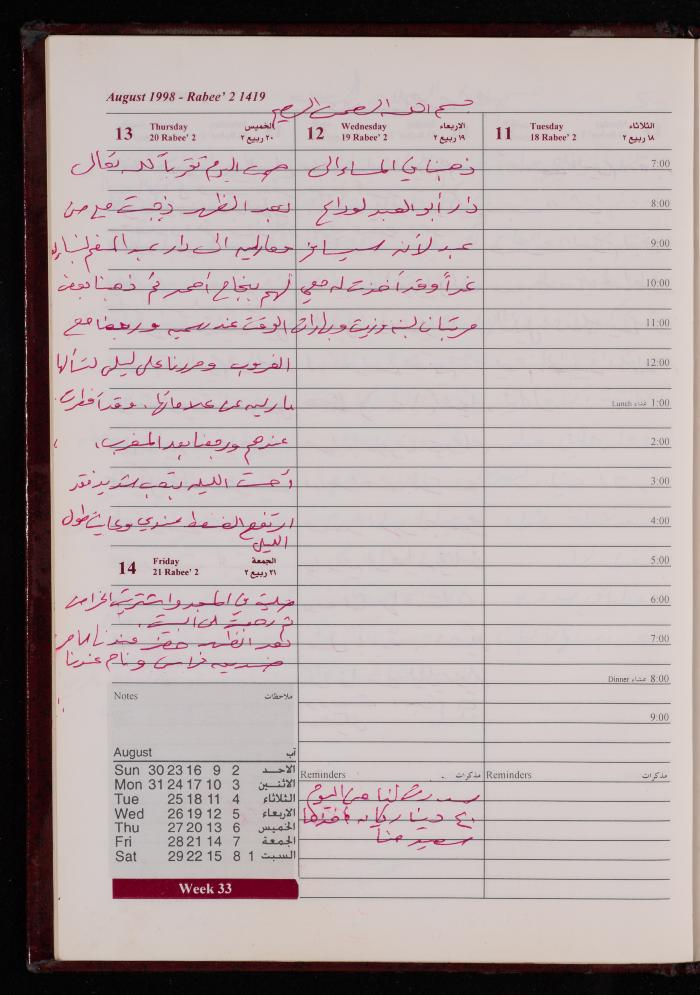 August 1998 - Rabee' 2 1419
بسم الله الرحمن الرحيم
11 Tuesday الثلاثاء
18 Rabee' 2 ١٨ ربيع ٢
7:00
8:00
9:00
10:00
11:00
12:00
Lunch غداء 1:00
2:00
3:00
4:00
5:00
6:00
7:00
Dinner عشاء 8:00
9:00
Reminders مذكرات
12 Wednesday الاربعاء
19 Rabee' 2 ١٩ ربيع ٢
ذهبنا في المساء الى
دار أبو العبد لوداع
عبد لأنه سيسافر
غداً وقد أخذت له معي
مرتبان لبنه وزيت وبهارات
Reminders مذكرات
لنا من اليوم
٤٠ دينار
سعيد
13 Thursday الخميس
20 Rabee' 2 ٢٠ ربيع ٢
صمت اليوم تقرباً لله تعالى
بعد الظهر ذهبت مع
الى دار عبد المنعم
لهم بنجاح أحمد ثم ذهبنا بعض
الوقت عند سميه ورجعنا مع
الغروب ومررنا على ليلى لنسألها
عن علاماتها. وقد أفطرت
عندهم ورجعنا بعد المغرب.
أحسست الليله بتعب شديد فقد
ارتفع الضغط عندي وعانيت طول
الليل
14 Friday الجمعة
21 Rabee' 2 ٢١ ربيع ٢
صليت في المسجد واشتريت
ثم رجعت الى البيت.
بعد الظهر حضر عندنا
فراس ونام عندنا
Notes ملاحظات
August آب
Sun 30 23 16 9 2 الاحد
Mon 31 24 17 10 3 الاثنين
Tue 25 18 11 4 الثلاثاء
Wed 26 19 12 5 الاربعاء
Thu 27 20 13 6 الخميس
Fri 28 21 14 7 الجمعة
Sat 29 22 15 8 1 السبت
Week 33